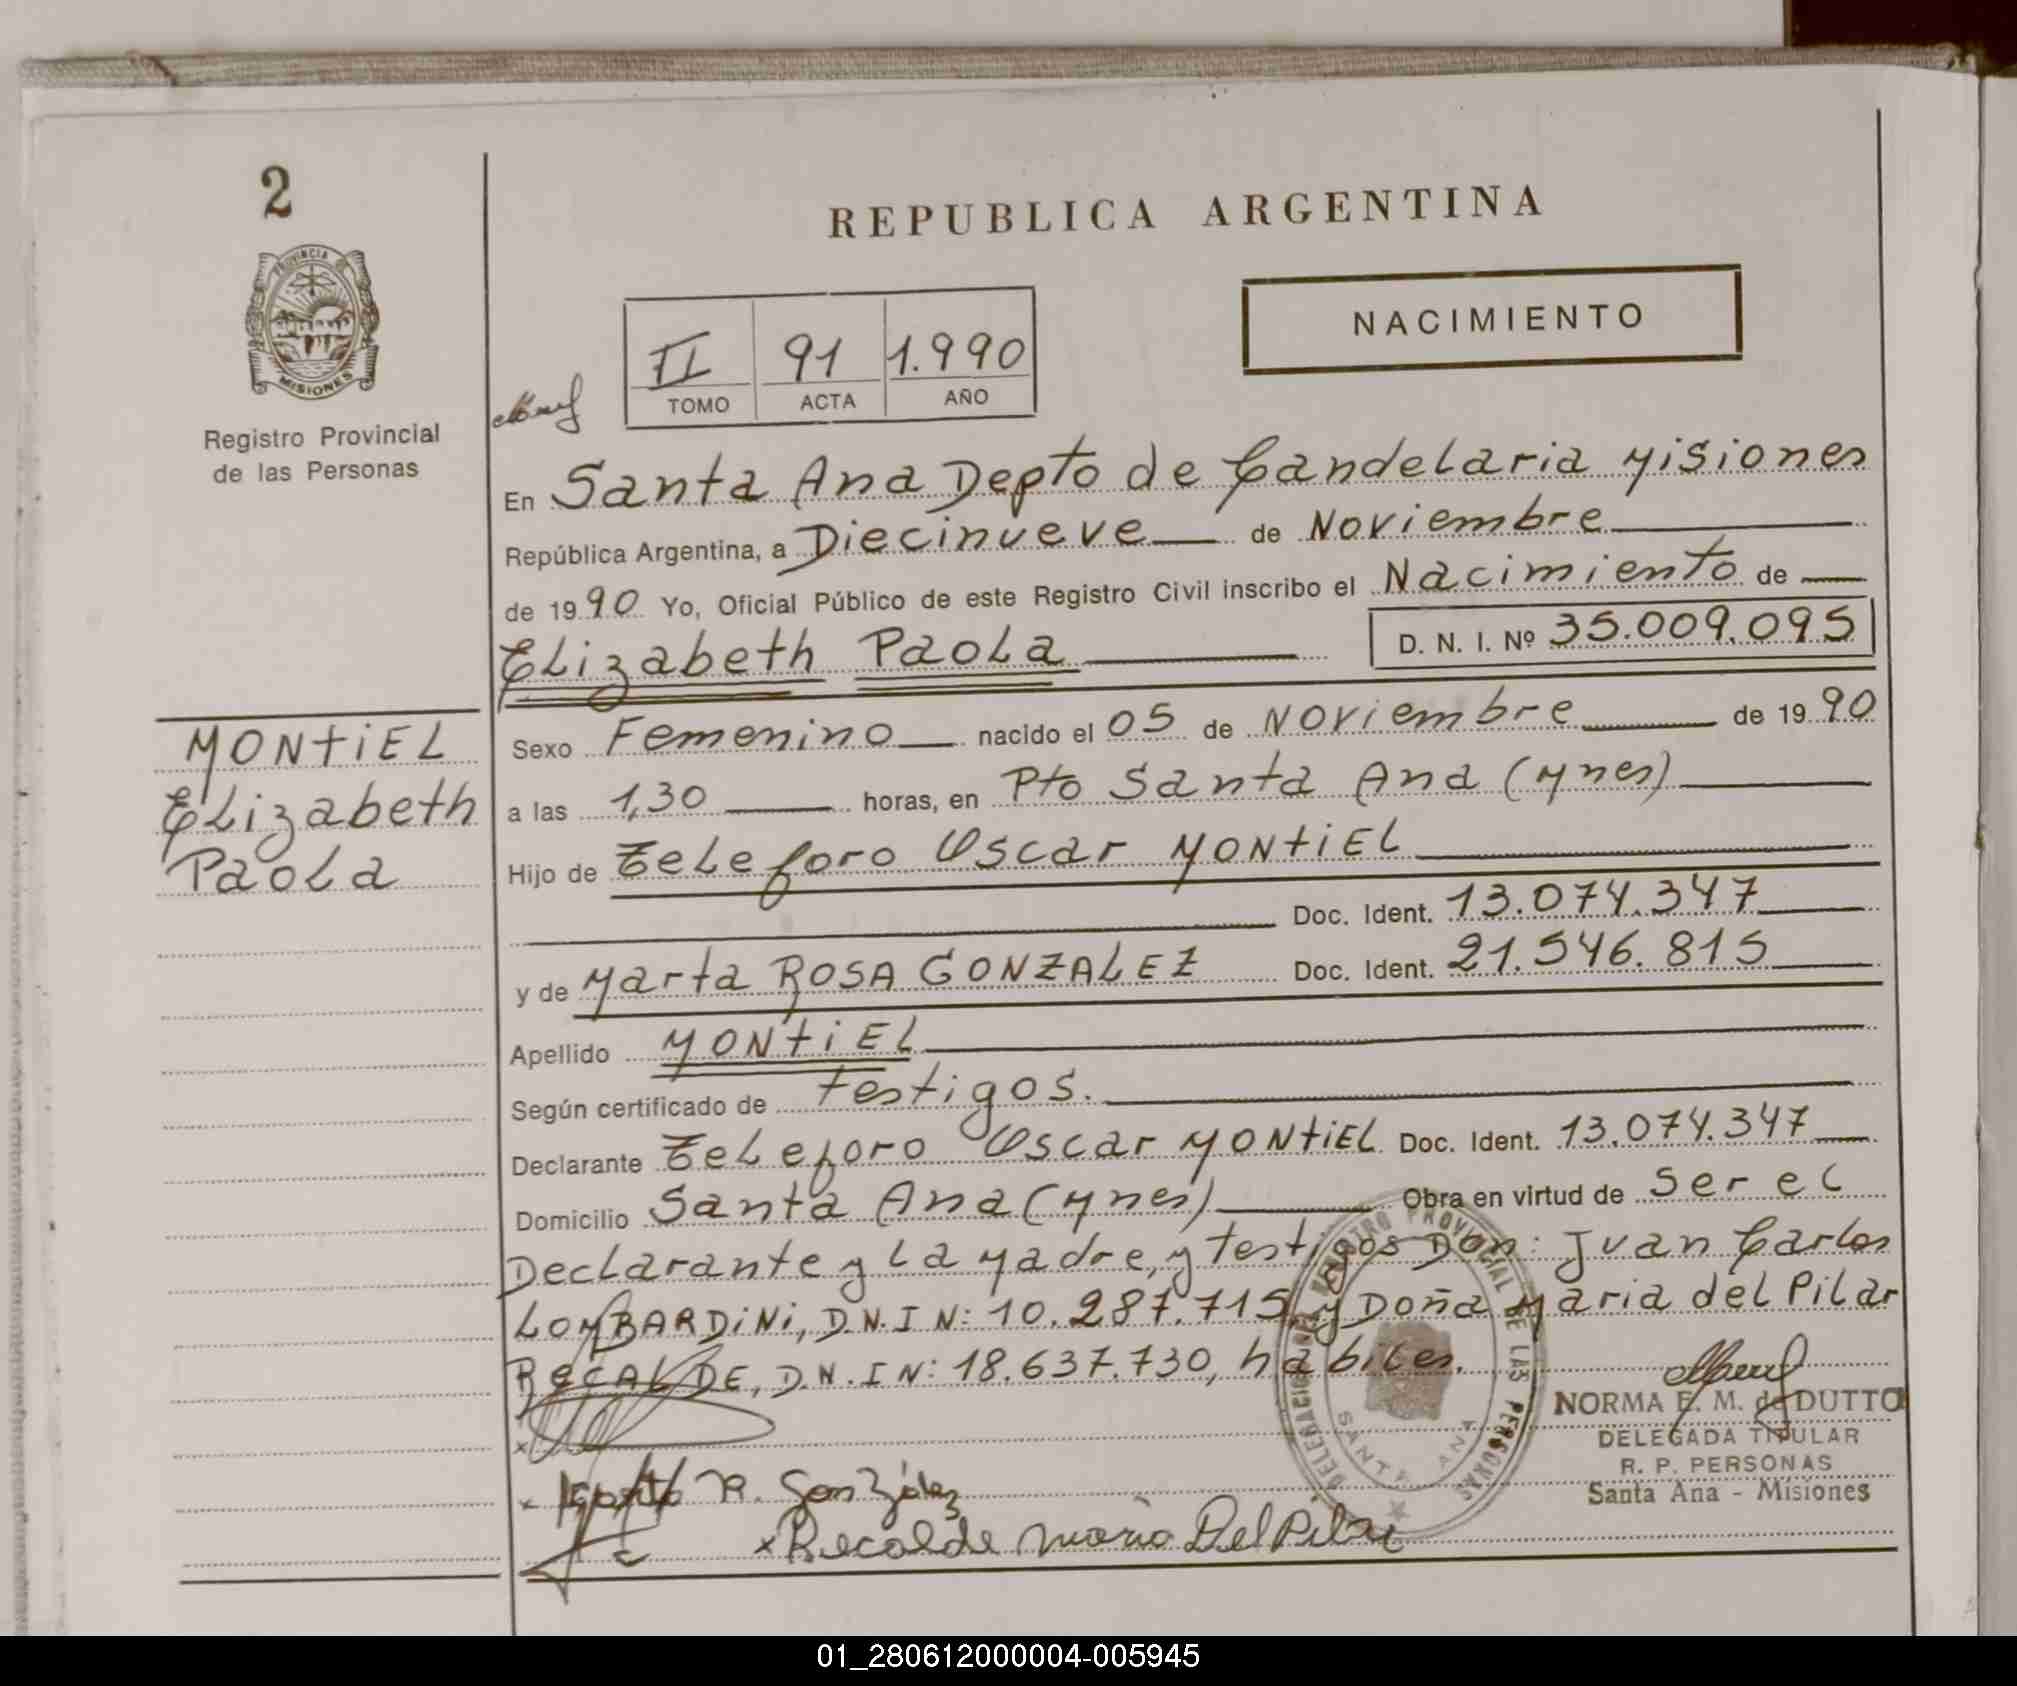 2
REPUBLICA ARGENTINA
PROVINCIA DE
MISIONES
Registro Provincial
de las Personas
II 91 1.990
TOMO ACTA AÑO
NACIMIENTO
En Santa Ana Depto de Candelaria Misiones
República Argentina, a Diecinueve de Noviembre
de 1990 Yo, Oficial Público de este Registro Civil inscribo el Nacimiento de
Elizabeth Paola D. N. I. Nº 35.009.095
MONTIEL
Elizabeth
Paola
Sexo Femenino nacido el 05 de Noviembre de 1990
a las 1,30 horas, en Pto Santa Ana (Mnes)
Hijo de Teleforo Oscar MONTIEL
Doc. Ident. 13.074.347
y de Marta ROSA GONZALEZ Doc. Ident. 21.546.815
Apellido MONTIEL
Según certificado de testigos.
Declarante Teleforo Oscar MONTIEL Doc. Ident. 13.074.347
Domicilio Santa Ana (Mnes) Obra en virtud de Ser el
Declarante y La Madre, y testigos Don: Juan Carlos
LOMBARDINI, D.N.I N: 10.287.715 y Doña Maria del Pilar
RECALDE, D.N.I N: 18.637.730, habiles.
DELEGACION REGISTRO PROVINCIAL DE LAS PERSONAS
SANTA ANA
NORMA E. M. de DUTTO
DELEGADA TITULAR
R. P. PERSONAS
Santa Ana - Misiones
x
x R. González
x Recalde Maria Del Pilar
01_280612000004-005945